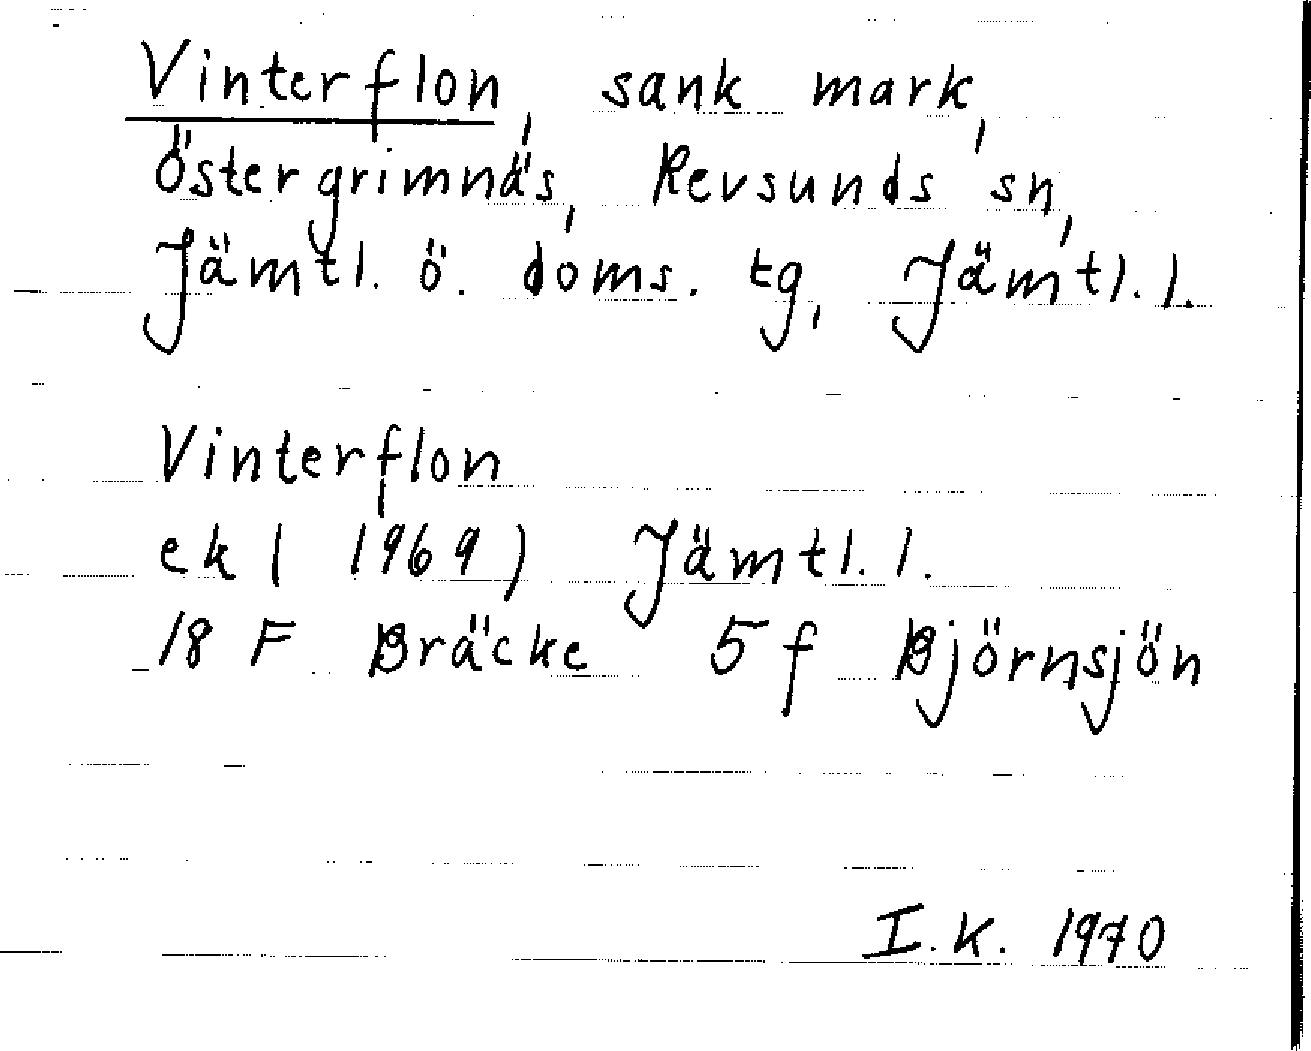 Vinterflon, sank mark,
Östergrimnäs, Revsunds sn,
Jämtl. ö. doms. tg, Jämtl. l.
Vinterflon
ek ( 1969) Jämtl. l.
18 F Bräcke 5 f Björnsjön
I. K. 1970